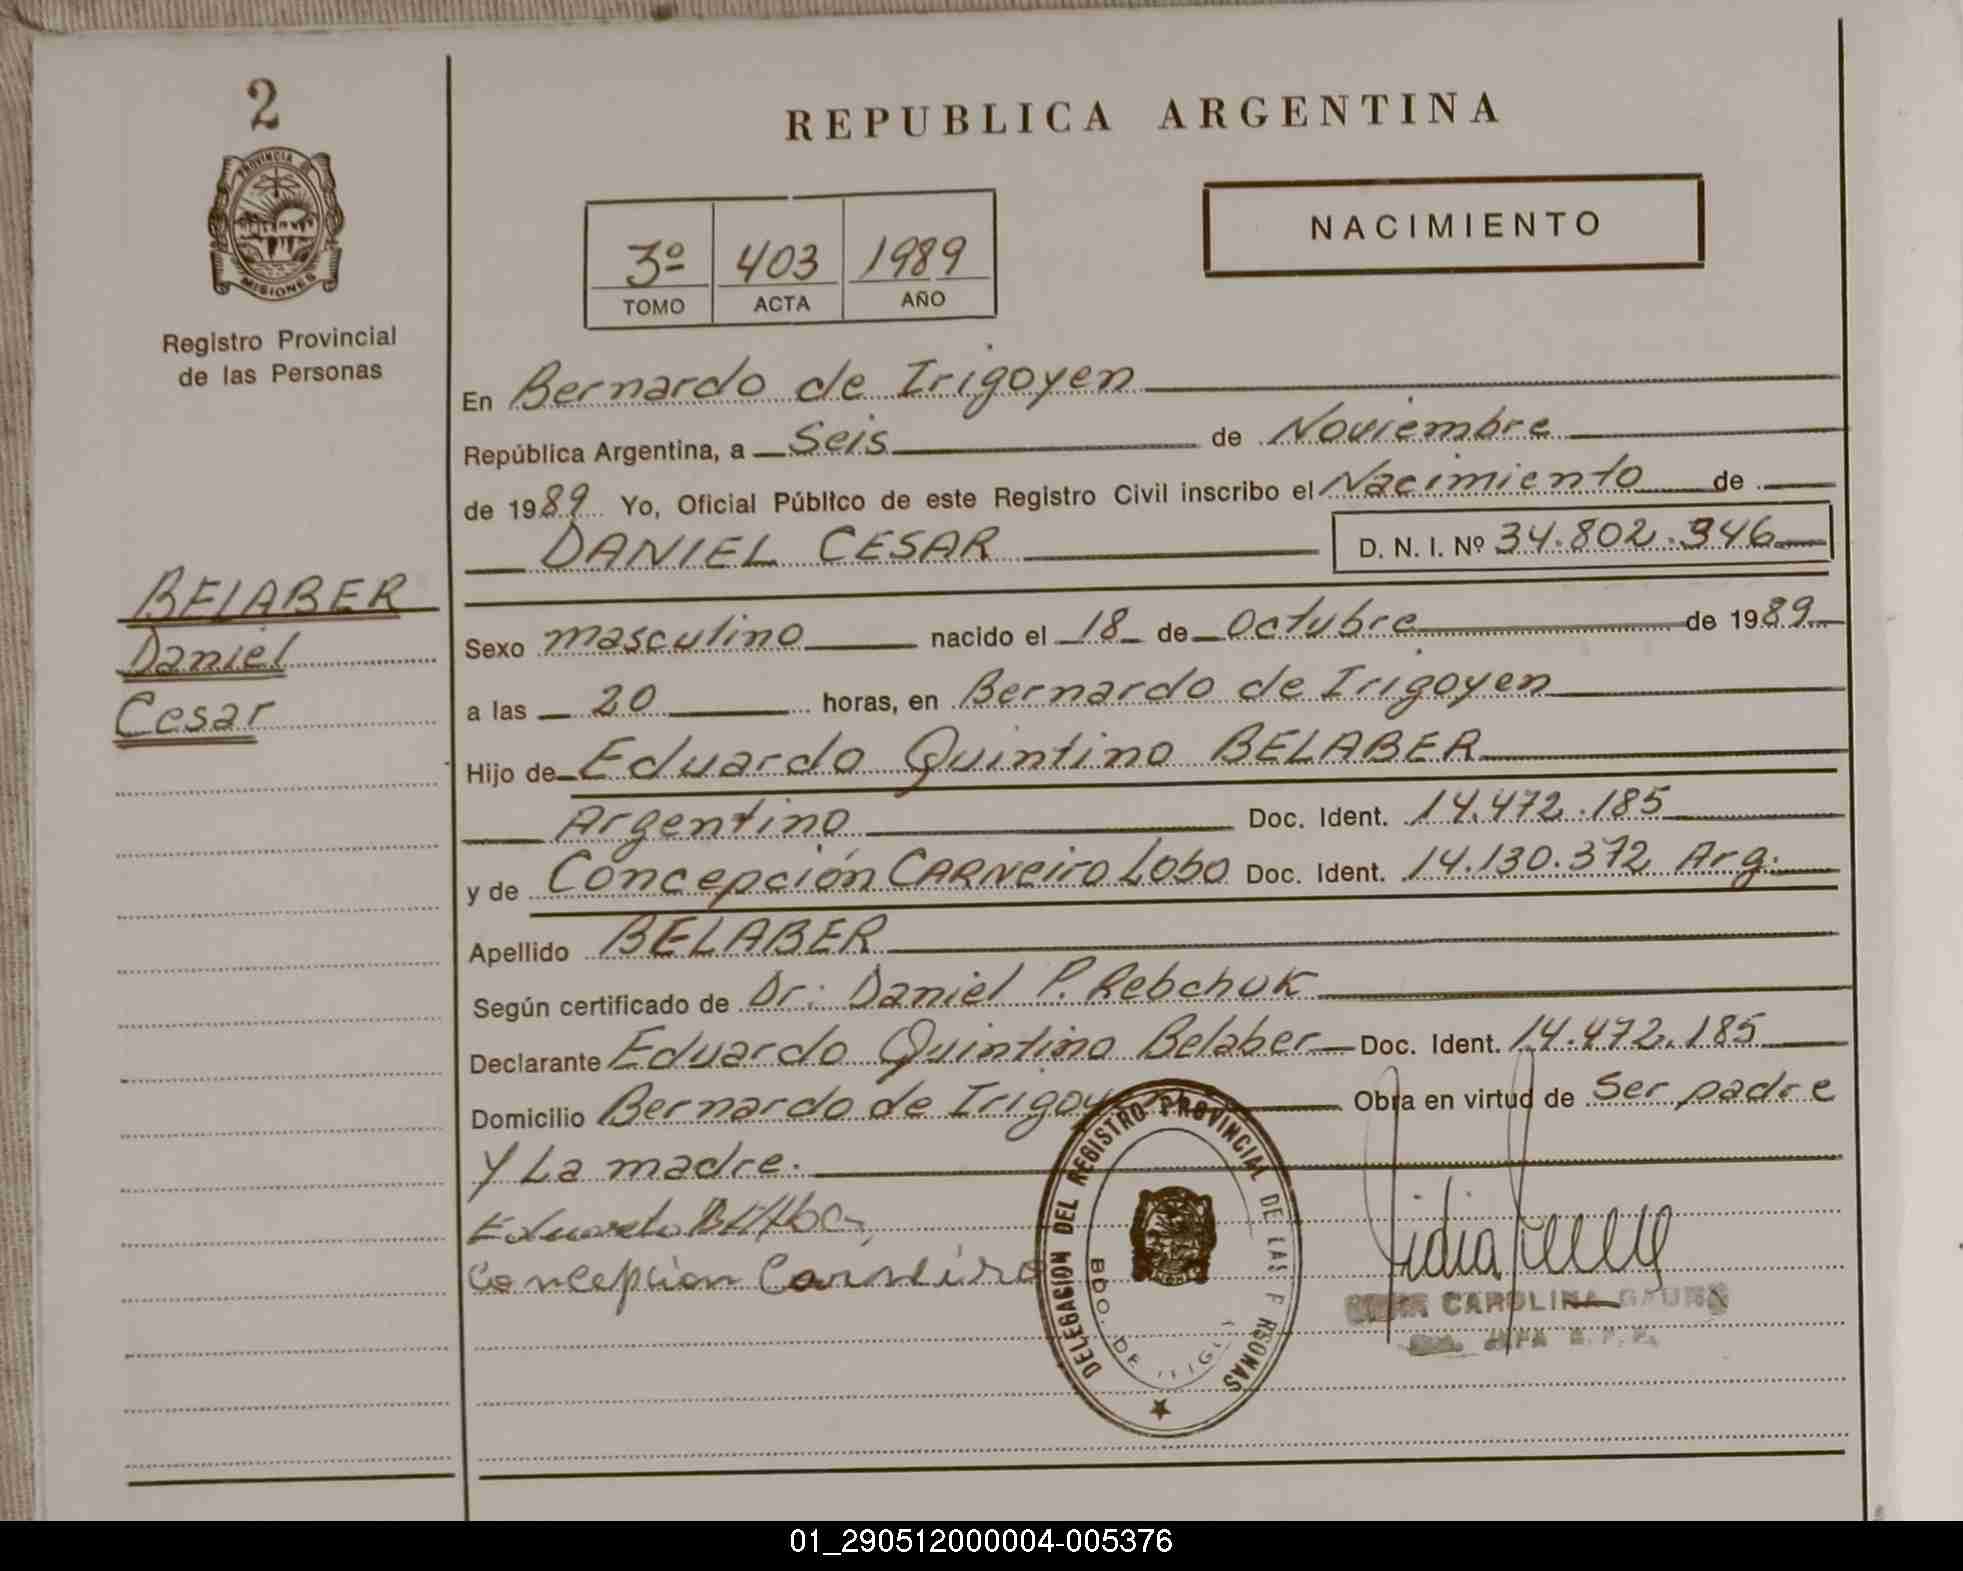 2
PROVINCIA DE
MISIONES
Registro Provincial
de las Personas
BELABER
Daniel
Cesar
REPUBLICA ARGENTINA
3º 403 1989
TOMO ACTA AÑO
NACIMIENTO
En Bernardo de Irigoyen
República Argentina, a Seis de Noviembre
de 1989 Yo, Oficial Público de este Registro Civil inscribo el Nacimiento de
DANIEL CESAR D. N. I. Nº 34.802.346
Sexo masculino nacido el 18 de Octubre de 1989
a las 20 horas, en Bernardo de Irigoyen
Hijo de Eduardo Quintino BELABER
Argentino Doc. Ident. 14.472.185
y de Concepción CARNeiro Lobo Doc. Ident. 14.130.372 Arg.
Apellido BELABER
Según certificado de Dr: Daniel P. Rebchuk
Declarante Eduardo Quintino Belaber Doc. Ident. 14.472.185
Domicilio Bernardo de Irigoy Obra en virtud de Ser padre
y La madre.
Eduardo
Concepcion Carneiro
DELEGACION DEL REGISTRO PROVINCIAL DE LAS PERSONAS
BDO. DE IRIGOYEN
Lidia
CAROLINA
01_290512000004-005376